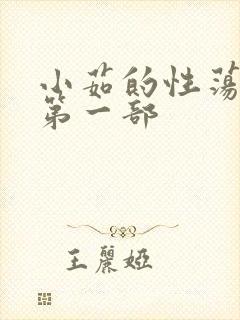 小茹的性荡
第一部
王麗婭